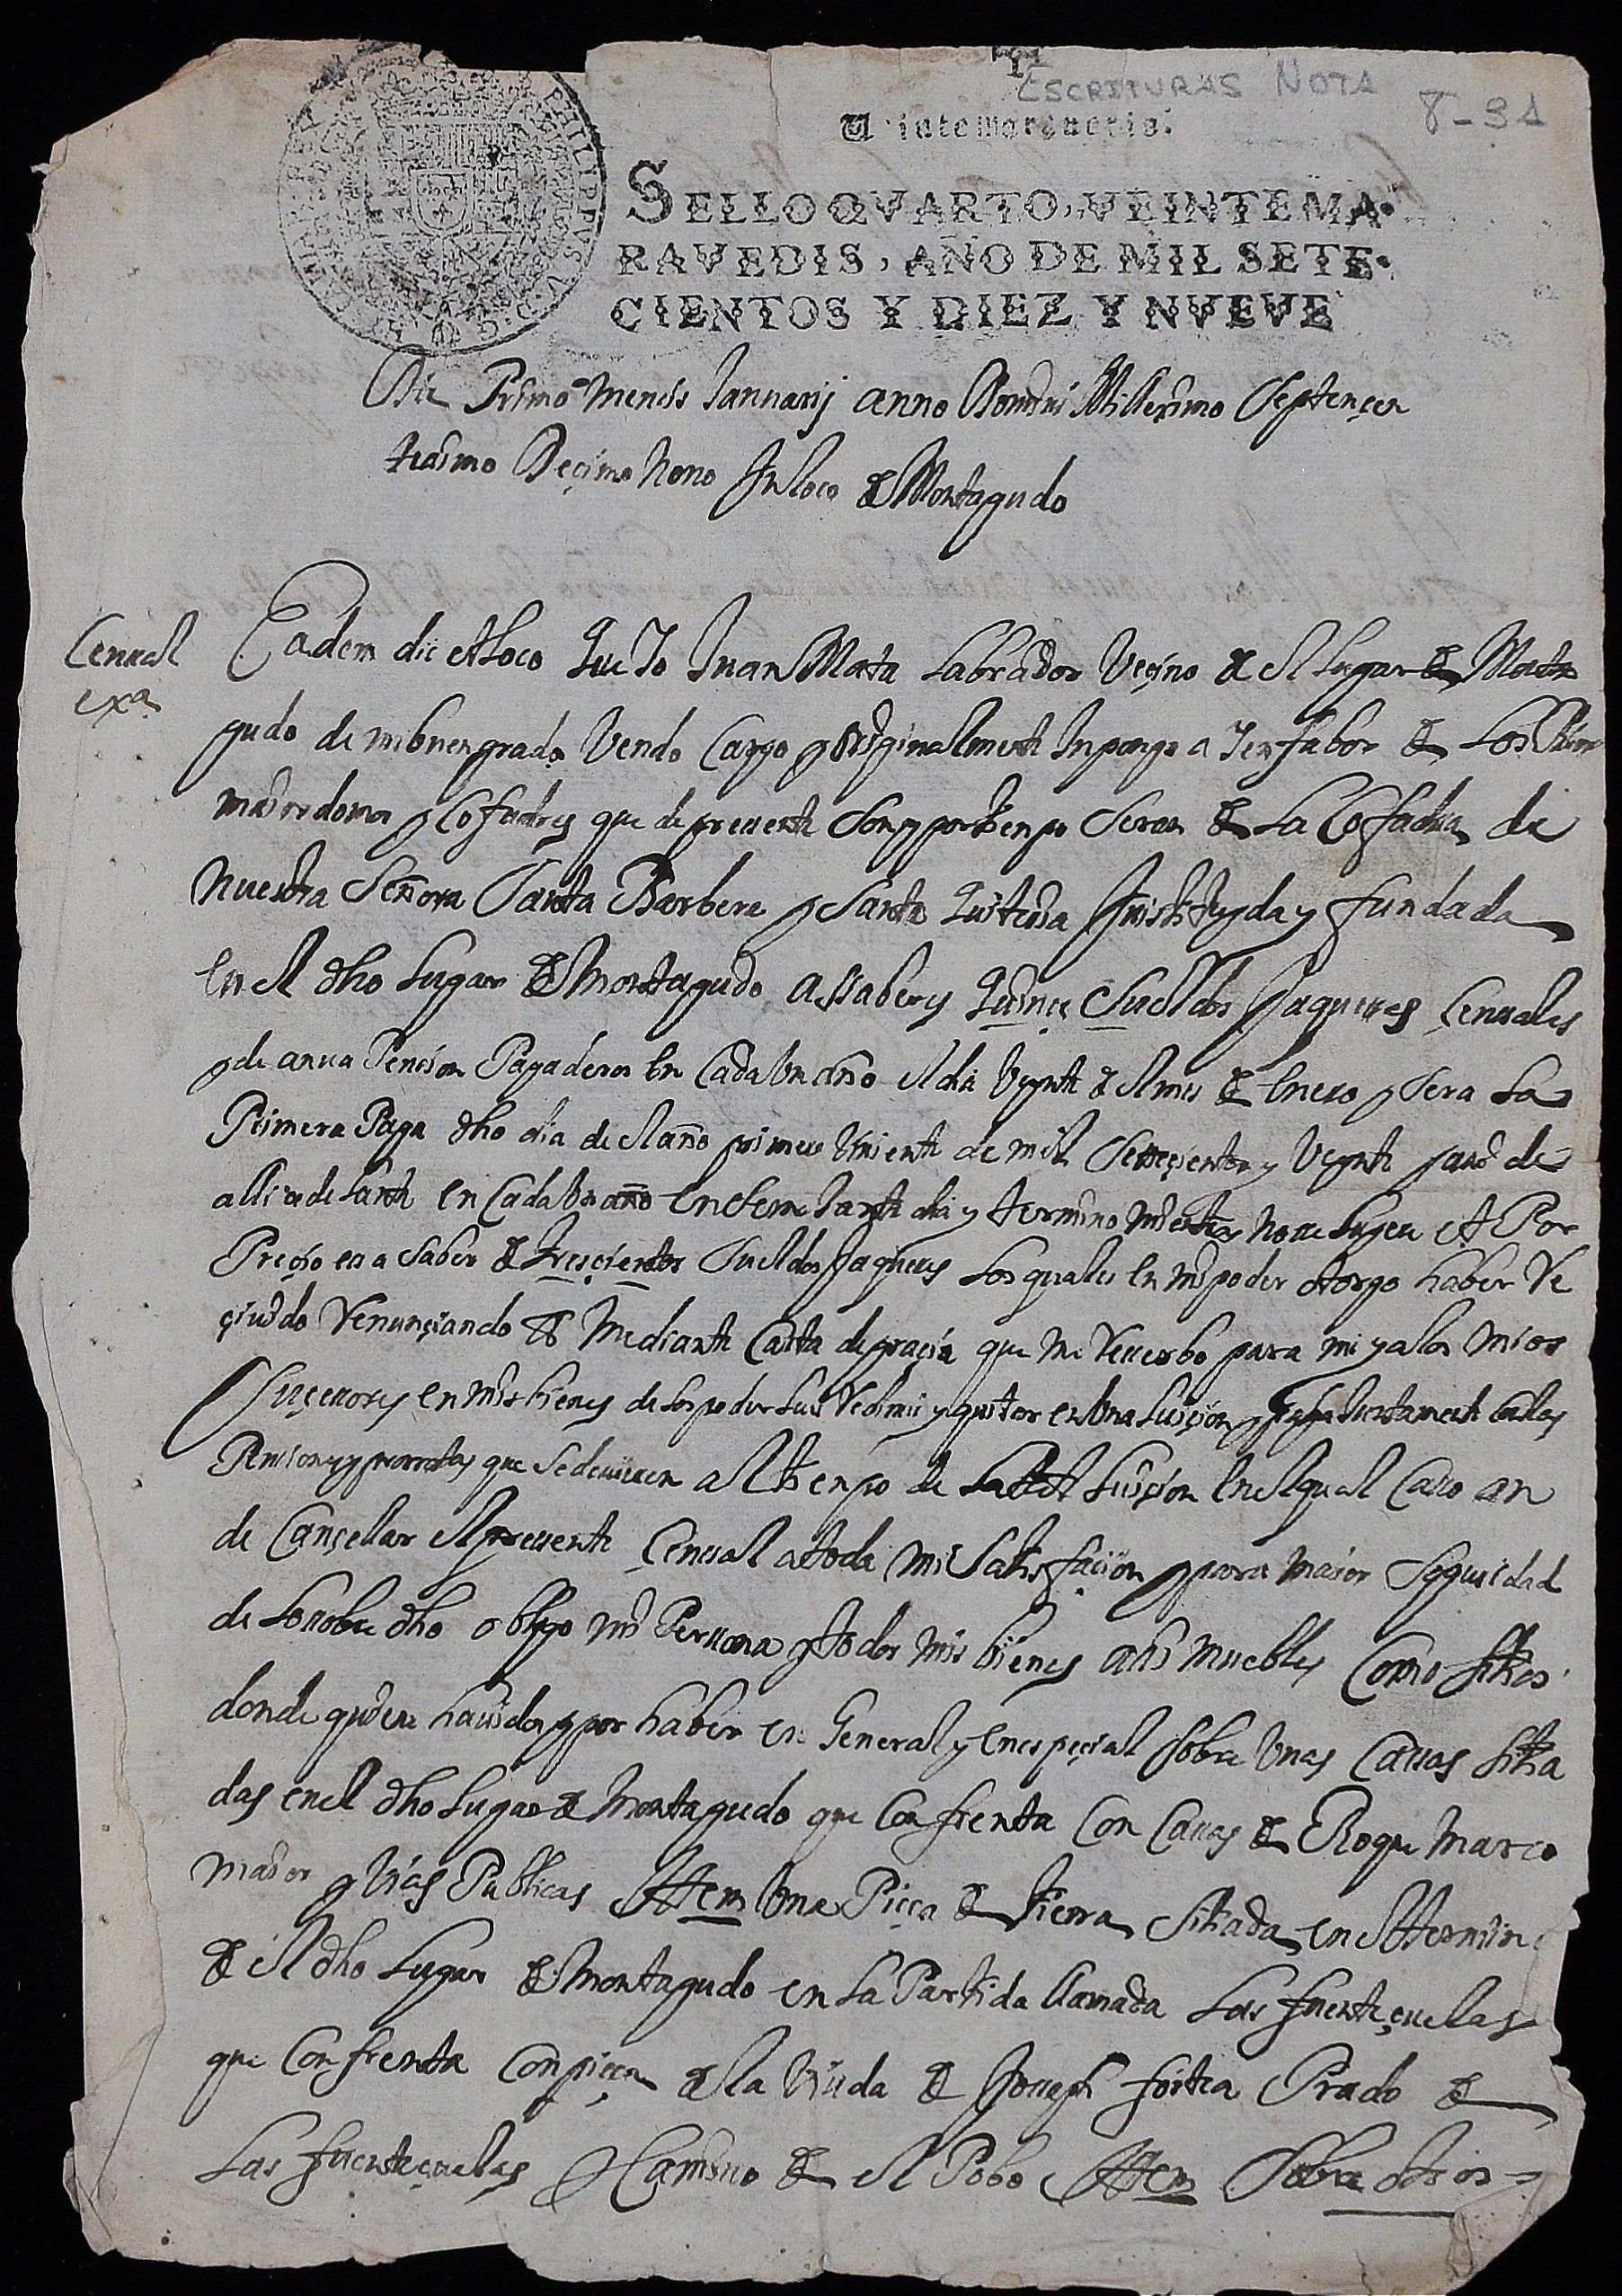 ESCRITURAS NOTA
8-31
Veinte maravedis.
SELLO QVARTO, VEINTE MA-
RAVEDIS, AÑO DE MIL SETE-
CIENTOS Y DIEZ Y NVEVE
Die Primo Mensis Januarij anno Domini Millesimo Septençen
tesimo Deçimo Nono In loco de Montagudo
Censal
exa
Eadem die et loco Que Yo Juan Mata Labrador Veçino de el Lugar de Monta
gudo de mi buen grado Vendo Cargo y originalmente Inpongo a Y en fabor de Los
maiordomos y Cofadres que de presente Son y por tienpo Seran de La Cofadria de
Nuestra Señora Santa Barbera y Santa Quiteria Instituyda y fundada
en el dho Lugar de Montagudo assaber es Quinçe Sueldos Jaqueses Çensales
y de anua Pension Pagaderos en Cada Un año el dia Veynte de el mes de Enero y Sera La
Primera Paga dho dia de el año primero Viniente de mil Setteçientos y Veynte y assi de
alli adelante en Cada Un año en Semejante dia y termino mientras no se Luyere et Por
Preçio es a Saber de Tresçientos Sueldos Jaqueses Los quales en mi poder otorgo haber Re
çiuido Renunçiando & Mediante Carta de graçia que me Reserbo para mi y a los mios
Suçesores en mis bienes de Los poder Luir Redimir y quitar en Una Luiçion y Juntamente Con las
Pensiones y prorratas que Se deuieren al tienpo de La tal Luiçion en el qual Caso an
de Cançellar el presente Çensal a toda mi Satisfaçion y para maior Seguridad
de Lo sobre dho obligo mi Persona y todos mis bienes assi muebles Como Sitios
donde quiere hauidos y por haber en General y en espeçial Sobre Unas Casas Sitia
das en el dho Lugar de Montagudo que Confrenta Con Casas de Roque Marco
maior y Vias Publicas Ittem Una Pieça de Tierra Sitiada en el Termino
de el dho Lugar de Montagudo en La Partida llamada Las fuenteçuelas
que Confrenta Con pieça de la Viuda de Joseph fortea Prado de
Las fuenteçuelas y Camino de el Pobo Ittem Sobre otros